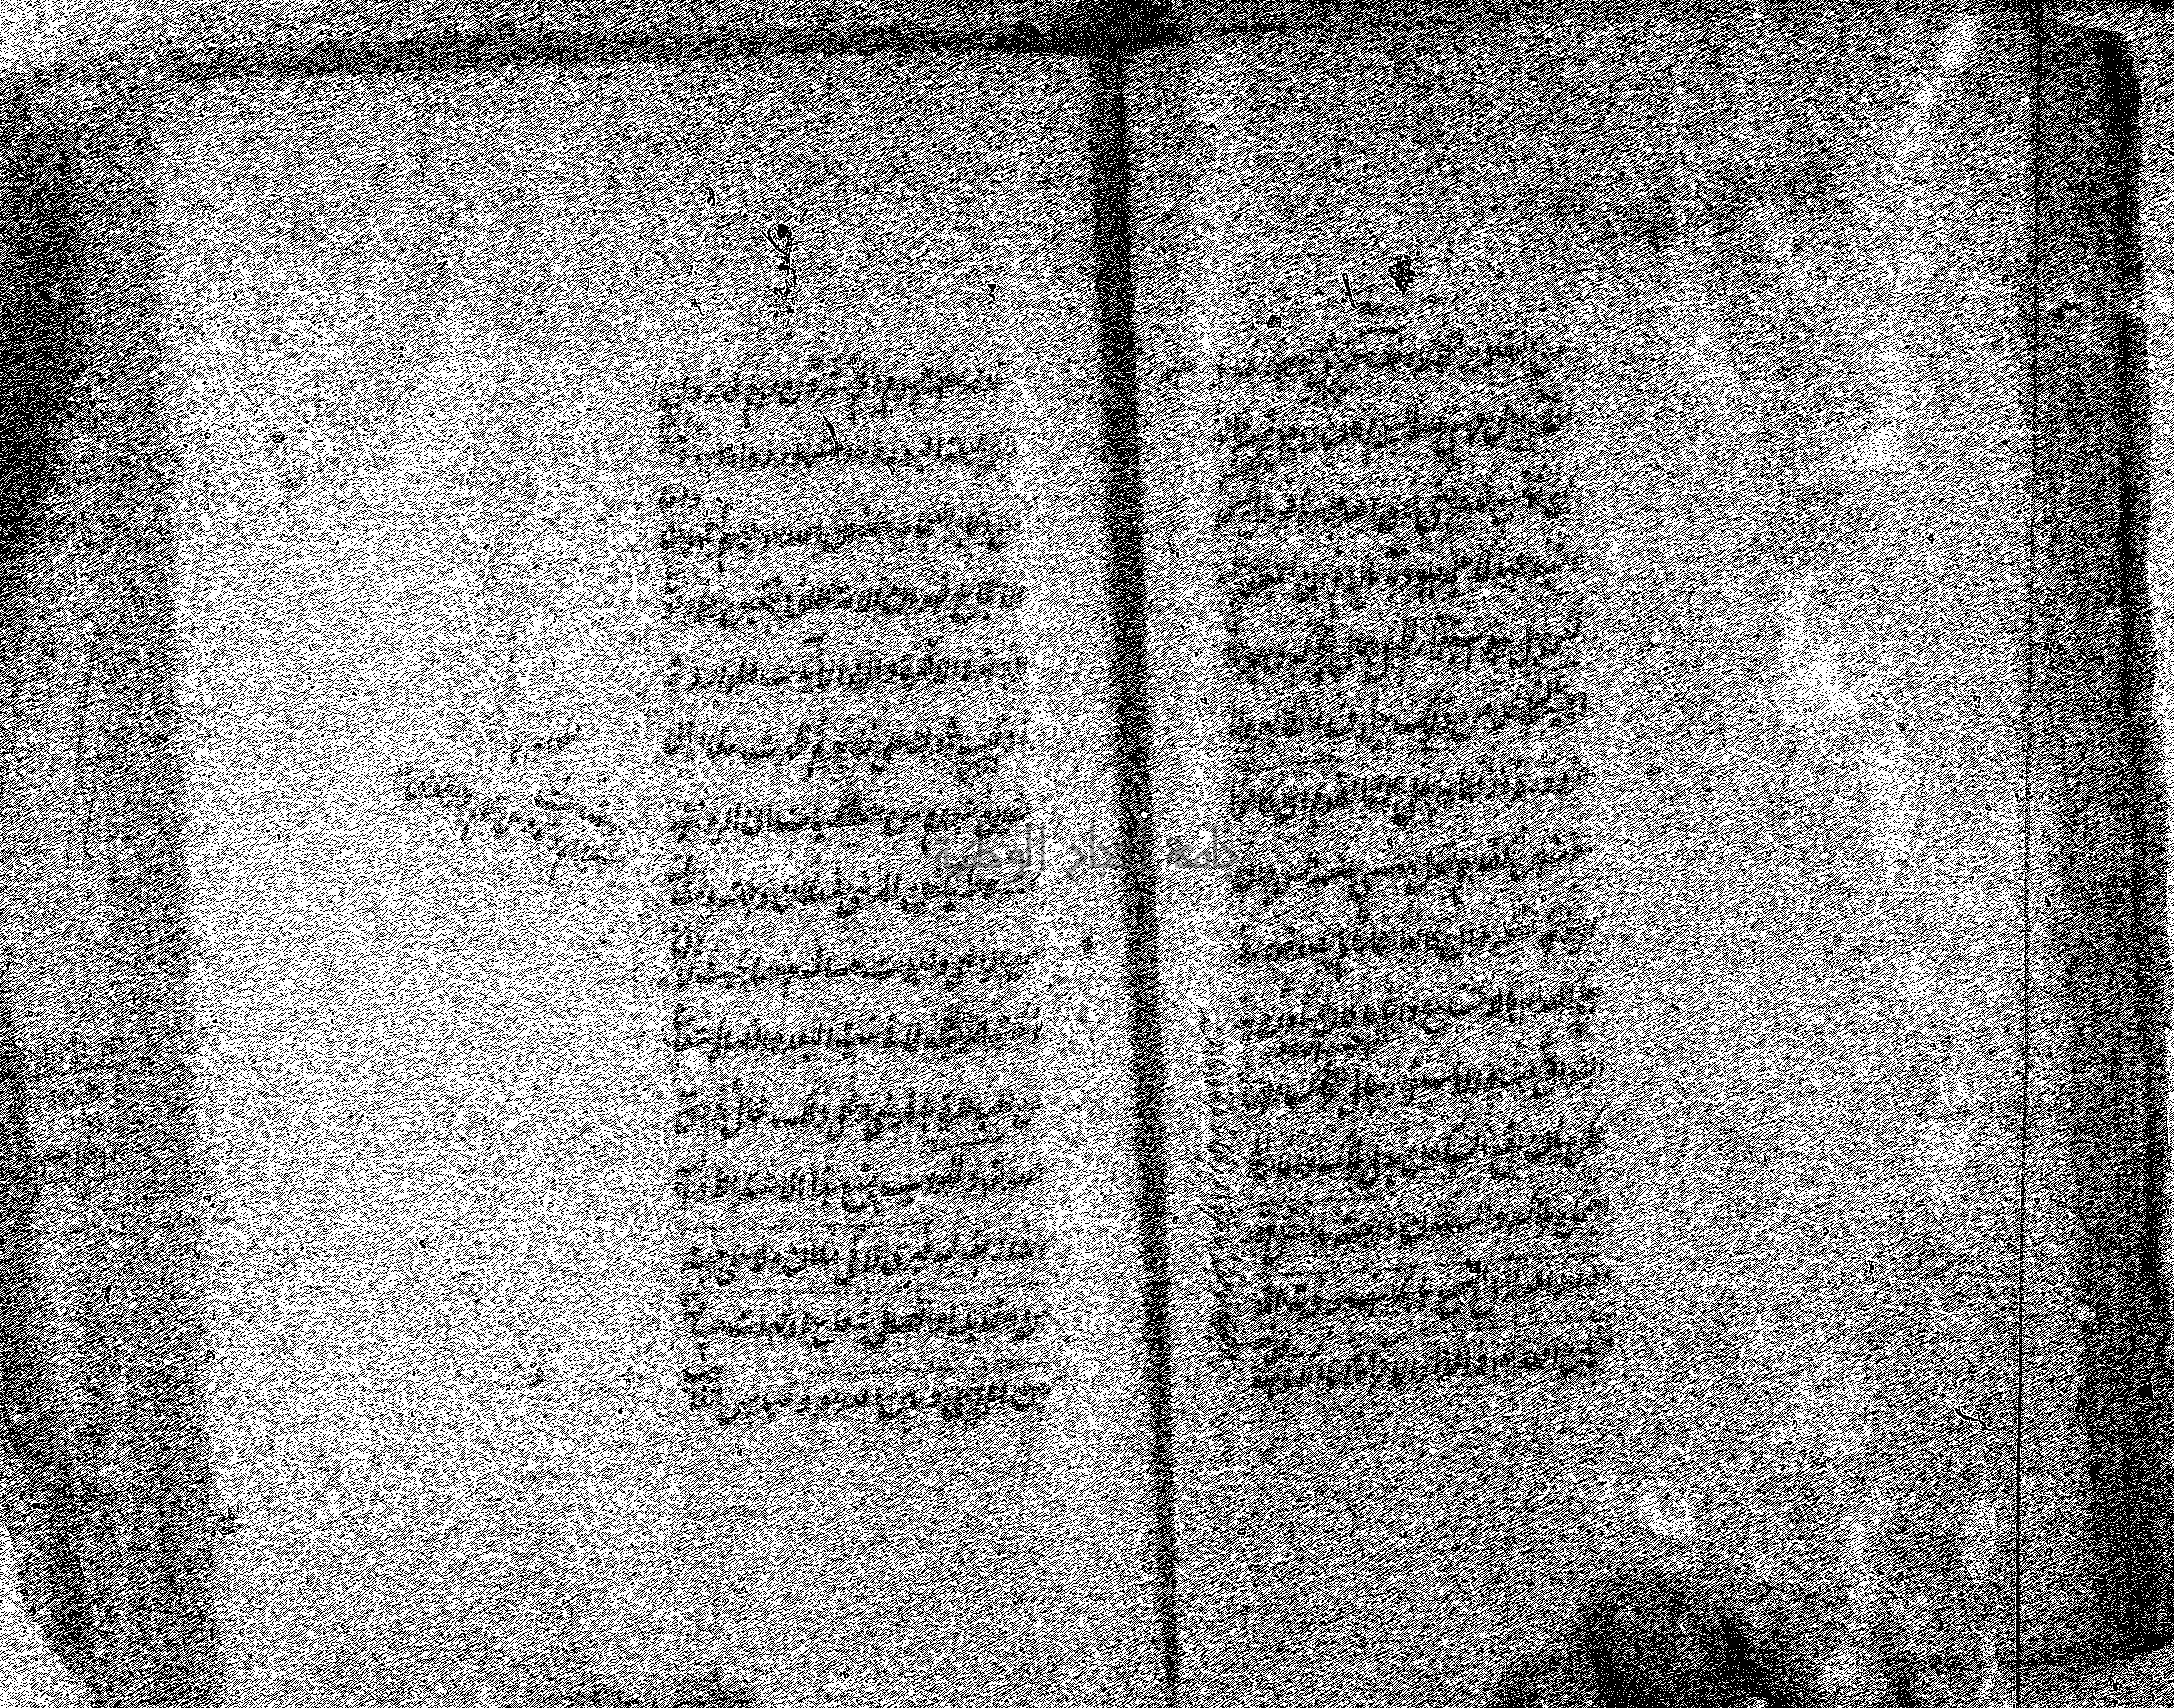 من التقادير الممكنة وقد اعترض بوجوه اقواها
ان سؤال موسى عليه السلام كان لاجل قومه حيث قالوا
لن نؤمن لك حتى نرى الله جهرة فسال ليعلموا
امتناعها كما علمه هو وبانا لا نم ان المعلق عليه
ممكن بل هو استقرار الجبل حال تحركه وهو مح
اجيب بان كلا من ذلك خلاف الظاهر ولا
ضرورة في ارتكابه على ان القوم ان كانوا
مؤمنين كفاهم قول موسى عليه السلام ان
الرؤية ممتنعة وان كانوا كفارا لم يصدقوه في
حكم الله تع بالامتناع وايا ما كان يكون
السؤال عبثا والاستقرار حال التحرك ايضا
ممكن بان يقع السكون بدل الحركة وانما المح
اجتماع الحركة والسكون واجبة بالنقل وقد
ورد الدليل السمعي بايجاب رؤية المو
منين الله تع في الدار الآخرة اما الكتاب فقوله
وجوه يومئذ ناضرة الى ربها ناظرة واما السنة
فقوله عليه السلام انكم سترون ربكم كما ترون
القمر ليلة البدر وهو مشهور رواه احد وعشرون
من اكابر الصحابة رضوان الله تع عليهم اجمعين واما
الاجماع فهو ان الامة كانوا مجمعين على وقوع
الرؤية في الآخرة وان الآيات الواردة
في ذلك محمولة على ظاهرها ثم ظهرت مقالة المخا
لفين شبههم من العقليات ان الرؤية
مشروطة بكون المرئي في مكان وجهة ومقابلة
من الرائي وثبوت مسافة بينهما بحيث لا يكون
في غاية القرب ولا في غاية البعد واتصال شعاع
من الباصرة بالمرئي وكل ذلك محال في حق
الله تع والجواب منع هذا الاشتراط واليه
اشار بقوله فيرى لا في مكان ولا على جهة
من مقابلة او اتصال شعاع او ثبوت مسافة
بين الرائي وبين الله تع وقياس الغائب
وشاعت
شبههم وتاويلاتهم واقوى
جامعة النجاح الوطنية